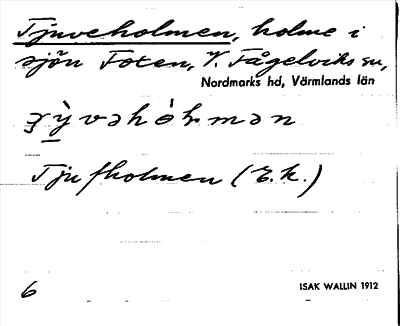 Tjuveholmen, holme i
sjön Foxen, V. Fågelviks sn,
Nordmarks hd, Värmlands län
Tjufholmen (E.K.)
6
ISAK WALLIN 1912